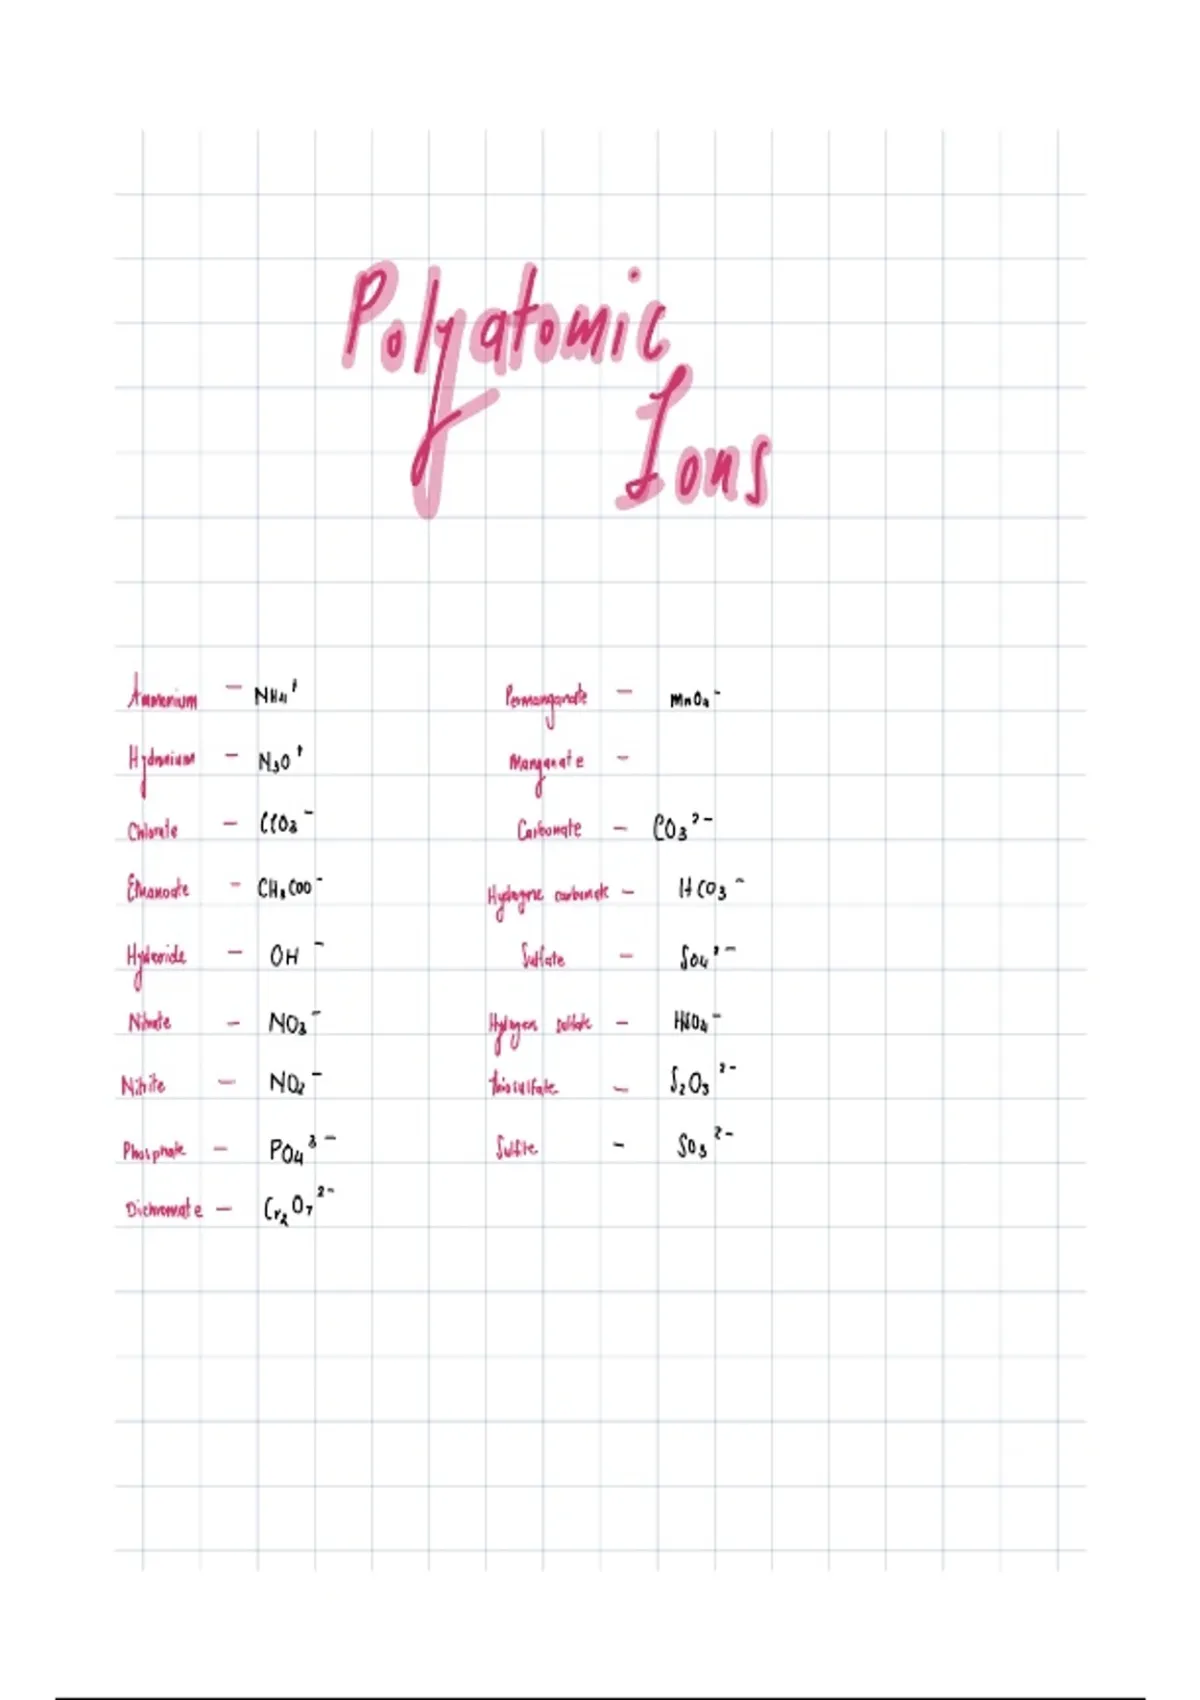 Polyatomic
Ions
Ammonium - NH4+
Hydronium - N3O+
Chlorate - ClO3-
Ethanoate - CH3COO-
Hydroxide - OH-
Nitrate - NO3-
Nitrite - NO2-
Phosphate - PO4 3-
Dichromate - Cr2O7 2-
Permanganate - MnO4-
Manganate -
Carbonate - CO3 2-
Hydrogne carbonate - HCO3-
Sulfate - SO4 2-
Hydrogen sulfate - HSO4-
thiosulfate - S2O3 2-
Sulfite - SO3 2-